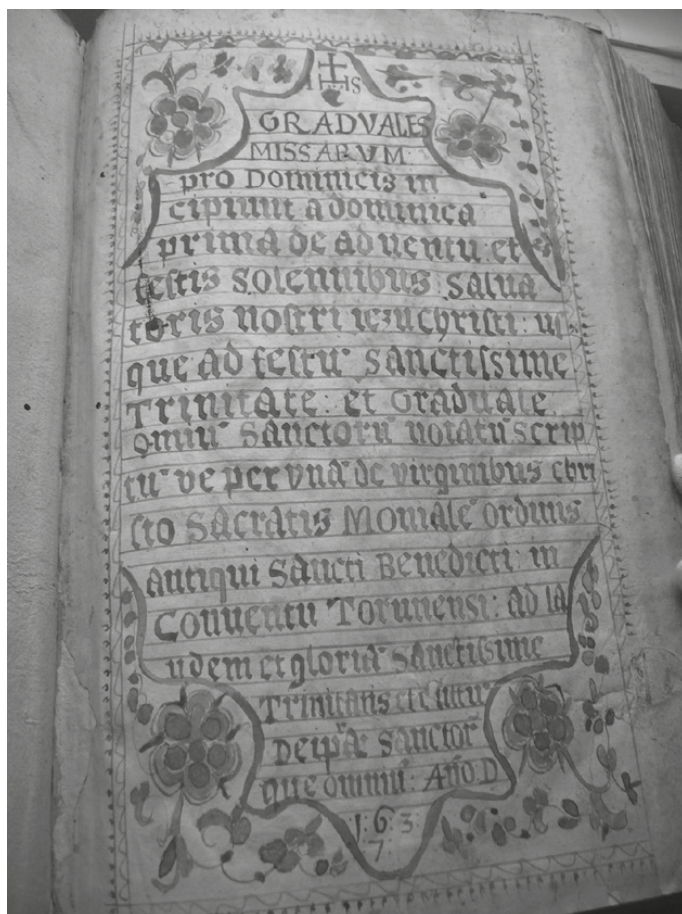 IHS
GRADVALES
MISSARVM
pro Dominicis in
cipiunt a dominica
prima de adventu et
festis solennibus: salua
toris nostri iezu christi: us
que ad festu˜ sanctissime
Trinitate: et Graduale
omniu˜ sanctoru˜ notatu˜ scrip
tu˜ ve per vna˜ de virginibus chri
sto sacratis Moniale˜ ordinis
antiqui sancti Benedicti: in
Conventu Torunensi: ad la
udem et gloria˜ sanctissime
Trinitatis
Deipa˜ sanctor˜
que omniu˜: Año. D
1: 6: 3:
7: